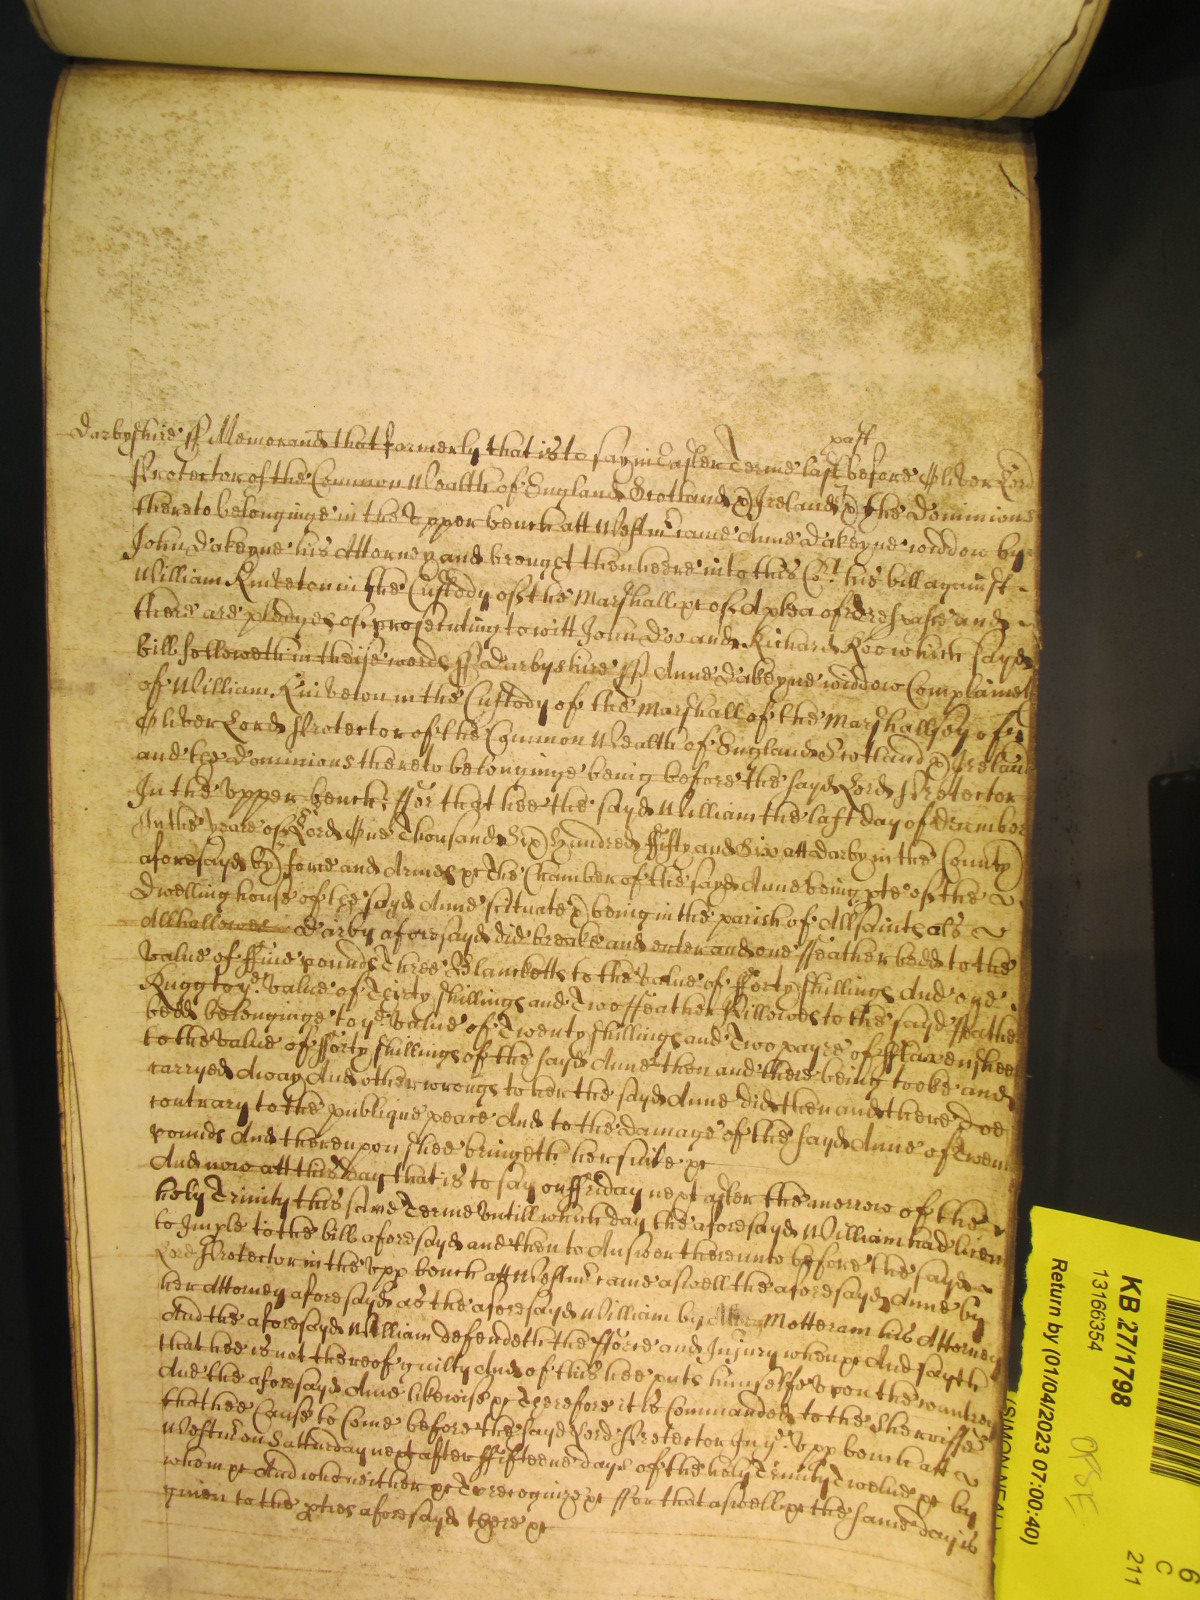 past
Darbyshire ss Memorand that formerly that is to say in Easter Terme last before Oliver Lord
Protector of the Common Wealth of England Scotland & Ireland & the Dominions
thereto belonginge in the Upper bench att Westmr came Anne Dakeyne widdow by
John Dakeyne his Attorney and brought then heere into this Cort his bill against
William Kniveton in the Custody of the Marshall &c of A plea of Trespasse and
there are pledges of prosecuting to witt John Doo and Richard Roo which sayd
bill followeth in theise words ss Darbyshire ss Anne Dakeyne widdow Complaineth
of William Kniveton in the Custody of the Marshall of the Marshallsey of
Oliver Lord Protector of the Common Wealth of England Scotland & Ireland
and the Dominions thereto belonginge being before the sayd Lord Protector
In the Upper bench: ffor that hee the sayd William the last day of December
In the yeare of Lord One Thousand Six Hundred ffifty and Six att Darby in the County
aforesayd by force and Armes &c The Chamber of the sayd Anne being pte of the
Dwelling house of the sayd Anne scituate & being in the parish of All Saints als
Allhallowes Darby aforesayd did breake and enter and one ffeather bedd to the
value of ffive pounds Three Blancketts to the value of fforty shillings And one
Rugg to ye value of Thirty shillings and Two ffeather Pillowes to the sayd ffeather
bedd belonginge to ye value of Twenty shillings and Two payre of fflaxen sheet
to the value of fforty shillings of the sayd Anne then and there being tooke and
carryed away And other wrongs to her the sayd Anne did then and there & oe
contrary to the publique peace And to the damage of the sayd Anne of Twent
pounds And thereupon shee bringeth her suite &c
And now att this day that is to say on ffriday next after the morrow of the
holy Trinity this same Terme untill which day the aforesayd William had licen
to Imple to the bill aforesayd and then to Answer thereunto before the sayd
Lord Protector in the Upp bench att Westmr came aswell the aforesayd Anne by
her Attorney aforesayd as the aforesayd William by Motteram his Attorney
And the aforesayd William defendeth the fforce and Injury when &c And sayth
that hee is not thereof guilty And of this hee puts himselfe Upon the countrey
And the aforesayd Anne likewise &c Therefore it is Commanded to the Sherriffe
that hee Cause to Come before the sayd Lord Protector In ye Upp bench att
Westmr on Satturday next after ffifteene days of the holy Trinity Twelve &c by
whom &c And who neither &c To recognize &c ffor that aswell &c the same day is
given to the pties aforesayd there &c
KB 27/1798
13166354
Return by (01/04/2023 07:00:40)
6
C
211